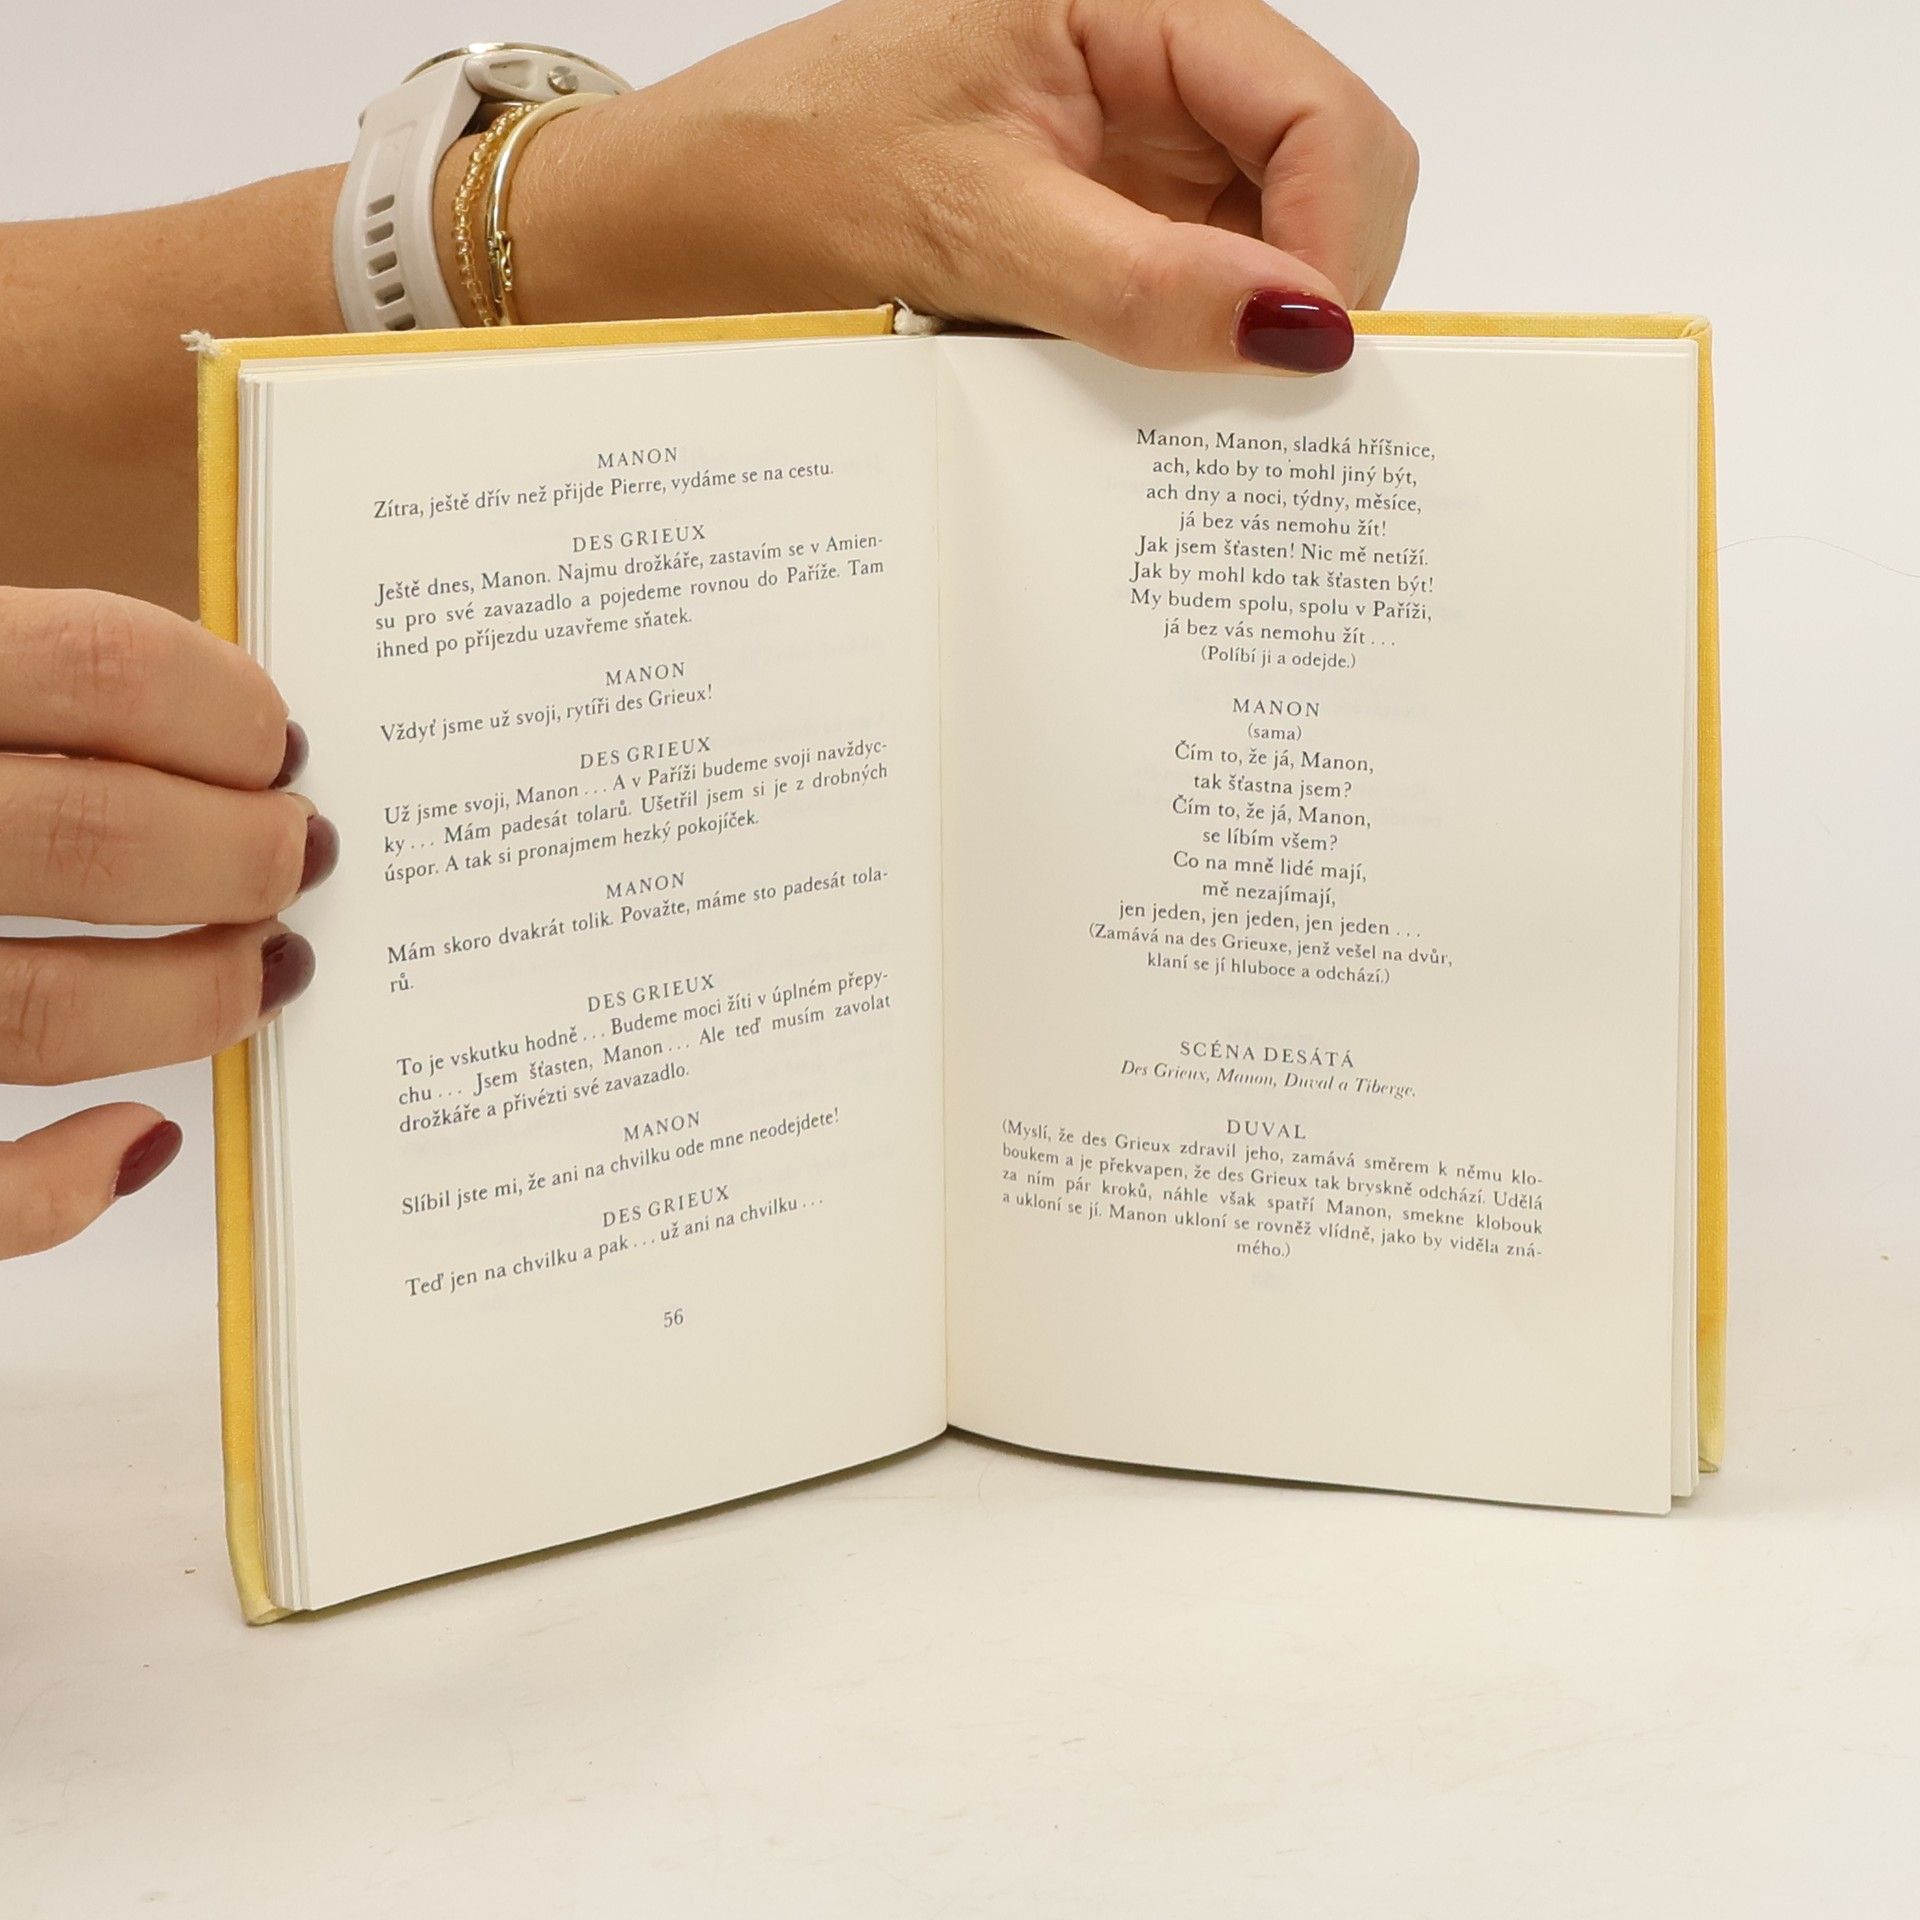 MANON
Zítra, ještě dřív než přijde Pierre, vydáme se na cestu.
DES GRIEUX
Ještě dnes, Manon. Najmu drožkáře, zastavím se v Amien-
su pro své zavazadlo a pojedeme rovnou do Paříže. Tam
ihned po příjezdu uzavřeme sňatek.
MANON
Vždyť jsme už svoji, rytíři des Grieux!
DES GRIEUX
Už jsme svoji, Manon ... A v Paříži budeme svoji navždyc-
ky ... Mám padesát tolarů. Ušetřil jsem si je z drobných
úspor. A tak si pronajmem hezký pokojíček.
MANON
Mám skoro dvakrát tolik. Považte, máme sto padesát tola-
rů.
DES GRIEUX
To je vskutku hodně ... Budeme moci žíti v úplném přepy-
chu ... Jsem šťasten, Manon ... Ale teď musím zavolat
drožkáře a přivézti své zavazadlo.
MANON
Slíbil jste mi, že ani na chvilku ode mne neodejdete!
DES GRIEUX
Teď jen na chvilku a pak ... už ani na chvilku ...
56
Manon, Manon, sladká hříšnice,
ach, kdo by to mohl jiný být,
ach dny a noci, týdny, měsíce,
já bez vás nemohu žít!
Jak jsem šťasten! Nic mě netíží.
Jak by mohl kdo tak šťasten být!
My budem spolu, spolu v Paříži,
já bez vás nemohu žít ...
(Políbí ji a odejde.)
MANON
(sama)
Čím to, že já, Manon,
tak šťastna jsem?
Čím to, že já, Manon,
se líbím všem?
Co na mně lidé mají,
mě nezajímají,
jen jeden, jen jeden, jen jeden ...
(Zamává na des Grieuxe, jenž vešel na dvůr,
klaní se jí hluboce a odchází.)
SCÉNA DESÁTÁ
Des Grieux, Manon, Duval a Tiberge.
DUVAL
(Myslí, že des Grieux zdravil jeho, zamává směrem k němu klo-
boukem a je překvapen, že des Grieux tak bryskně odchází. Udělá
za ním pár kroků, náhle však spatří Manon, smekne klobouk
a ukloní se jí. Manon ukloní se rovněž vlídně, jako by viděla zná-
mého.)